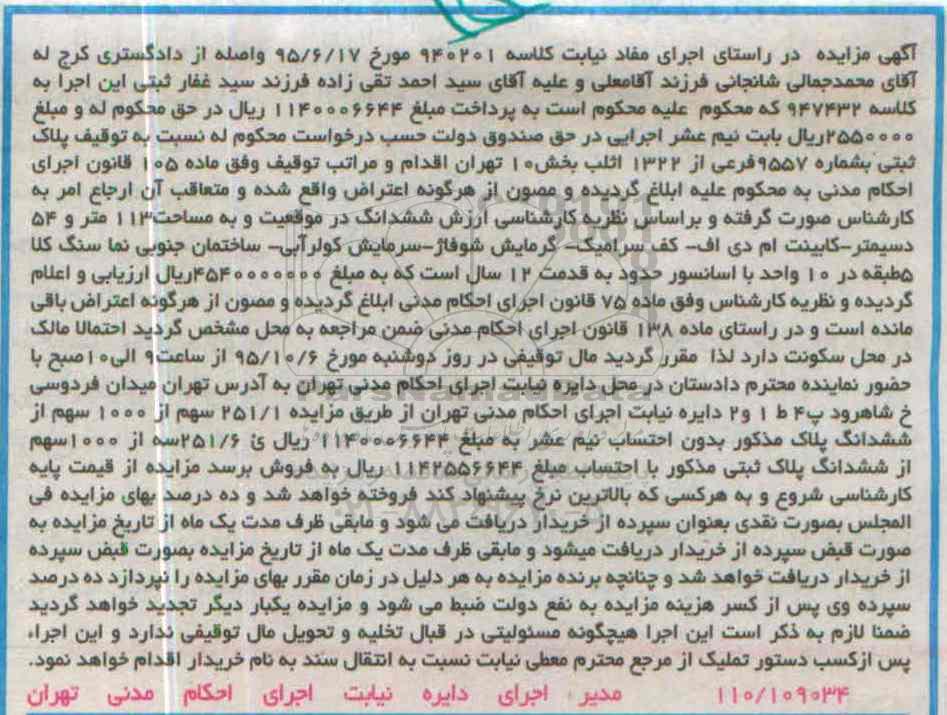 آگهی مزایده در راستای اجرای مفاد نیابت کلاسه ۹۴۰۲۰۱ مورخ ۹۵/۶/۱۷ واصله از دادگستری کرج له
آقای محمدجمالی شانجانی فرزند آقامعلی و علیه آقای سید احمد تقی زاده فرزند سید غفار ثبتی این اجرا به
کلاسه ۹۴۷۴۳۲ که محکوم علیه محکوم است به پرداخت مبلغ ۱۱۴۰۰۰۶۶۴۴ ریال در حق محکوم له و مبلغ
۲۵۵۰۰۰۰ریال بابت نیم عشر اجرایی در حق صندوق دولت حسب درخواست محکوم له نسبت به توقیف پلاک
ثبتی بشماره ۹۵۵۷فرعی از ۱۳۲۲ اثلب بخش۱۰ تهران اقدام و مراتب توقیف وفق ماده ۱۰۵ قانون اجرای
احکام مدنی به محکوم علیه ابلاغ گردیده و مصون از هرگونه اعتراض واقع شده و متعاقب آن ارجاع امر به
کارشناس صورت گرفته و براساس نظریه کارشناسی ارزش ششدانگ در موقعیت و به مساحت۱۱۳ متر و ۵۴
دسیمتر-کابینت ام دی اف- کف سرامیک- گرمایش شوفاژ-سرمایش کولرآبی- ساختمان جنوبی نما سنگ کلا
۵طبقه در ۱۰ واحد با اسانسور حدود به قدمت ۱۲ سال است که به مبلغ ۴۵۴۰۰۰۰۰۰۰ریال ارزیابی و اعلام
گردیده و نظریه کارشناس وفق ماده ۷۵ قانون اجرای احکام مدنی ابلاغ گردیده و مصون از هرگونه اعتراض باقی
مانده است و در راستای ماده ۱۳۸ قانون اجرای احکام مدنی ضمن مراجعه به محل مشخص گردید احتمالا مالک
در محل سکونت دارد لذا مقرر گردید مال توقیفی در روز دوشنبه مورخ ۹۵/۱۰/۶ از ساعت۹ الی۱۰صبح با
حضور نماینده محترم دادستان در محل دایره نیابت اجرای احکام مدنی تهران به آدرس تهران میدان فردوسی
خ شاهرود پ۴ ط ۱ و۲ دایره نیابت اجرای احکام مدنی تهران از طریق مزایده ۲۵۱/۱ سهم از ۱۰۰۰ سهم از
ششدانگ پلاک مذکور بدون احتساب نیم عشر به مبلغ ۱۱۴۰۰۰۶۶۴۴ ریال ئ ۲۵۱/۶سه از ۱۰۰۰سهم
از ششدانگ پلاک ثبتی مذکور با احتساب مبلغ ۱۱۴۲۵۵۶۶۴۴ ریال به فروش برسد مزایده از قیمت پایه
کارشناسی شروع و به هرکسی که بالاترین نرخ پیشنهاد کند فروخته خواهد شد و ده درصد بهای مزایده فی
المجلس بصورت نقدی بعنوان سپرده از خریدار دریافت می شود و مابقی ظرف مدت یک ماه از تاریخ مزایده به
صورت قبض سپرده از خریدار دریافت میشود و مابقی ظرف مدت یک ماه از تاریخ مزایده بصورت قبض سپرده
از خریدار دریافت خواهد شد و چنانچه برنده مزایده به هر دلیل در زمان مقرر بهای مزایده را نپردازد ده درصد
سپرده وی پس از کسر هزینه مزایده به نفع دولت ضبط می شود و مزایده یکبار دیگر تجدید خواهد گردید
ضمنا لازم به ذکر است این اجرا هیچگونه مسئولیتی در قبال تخلیه و تحویل مال توقیفی ندارد و این اجراء
پس ازکسب دستور تملیک از مرجع محترم معطی نیابت نسبت به انتقال سند به نام خریدار اقدام خواهد نمود.
۱۱۰/۱۰۹۰۳۴ مدیر اجرای دایره نیابت اجرای احکام مدنی تهران